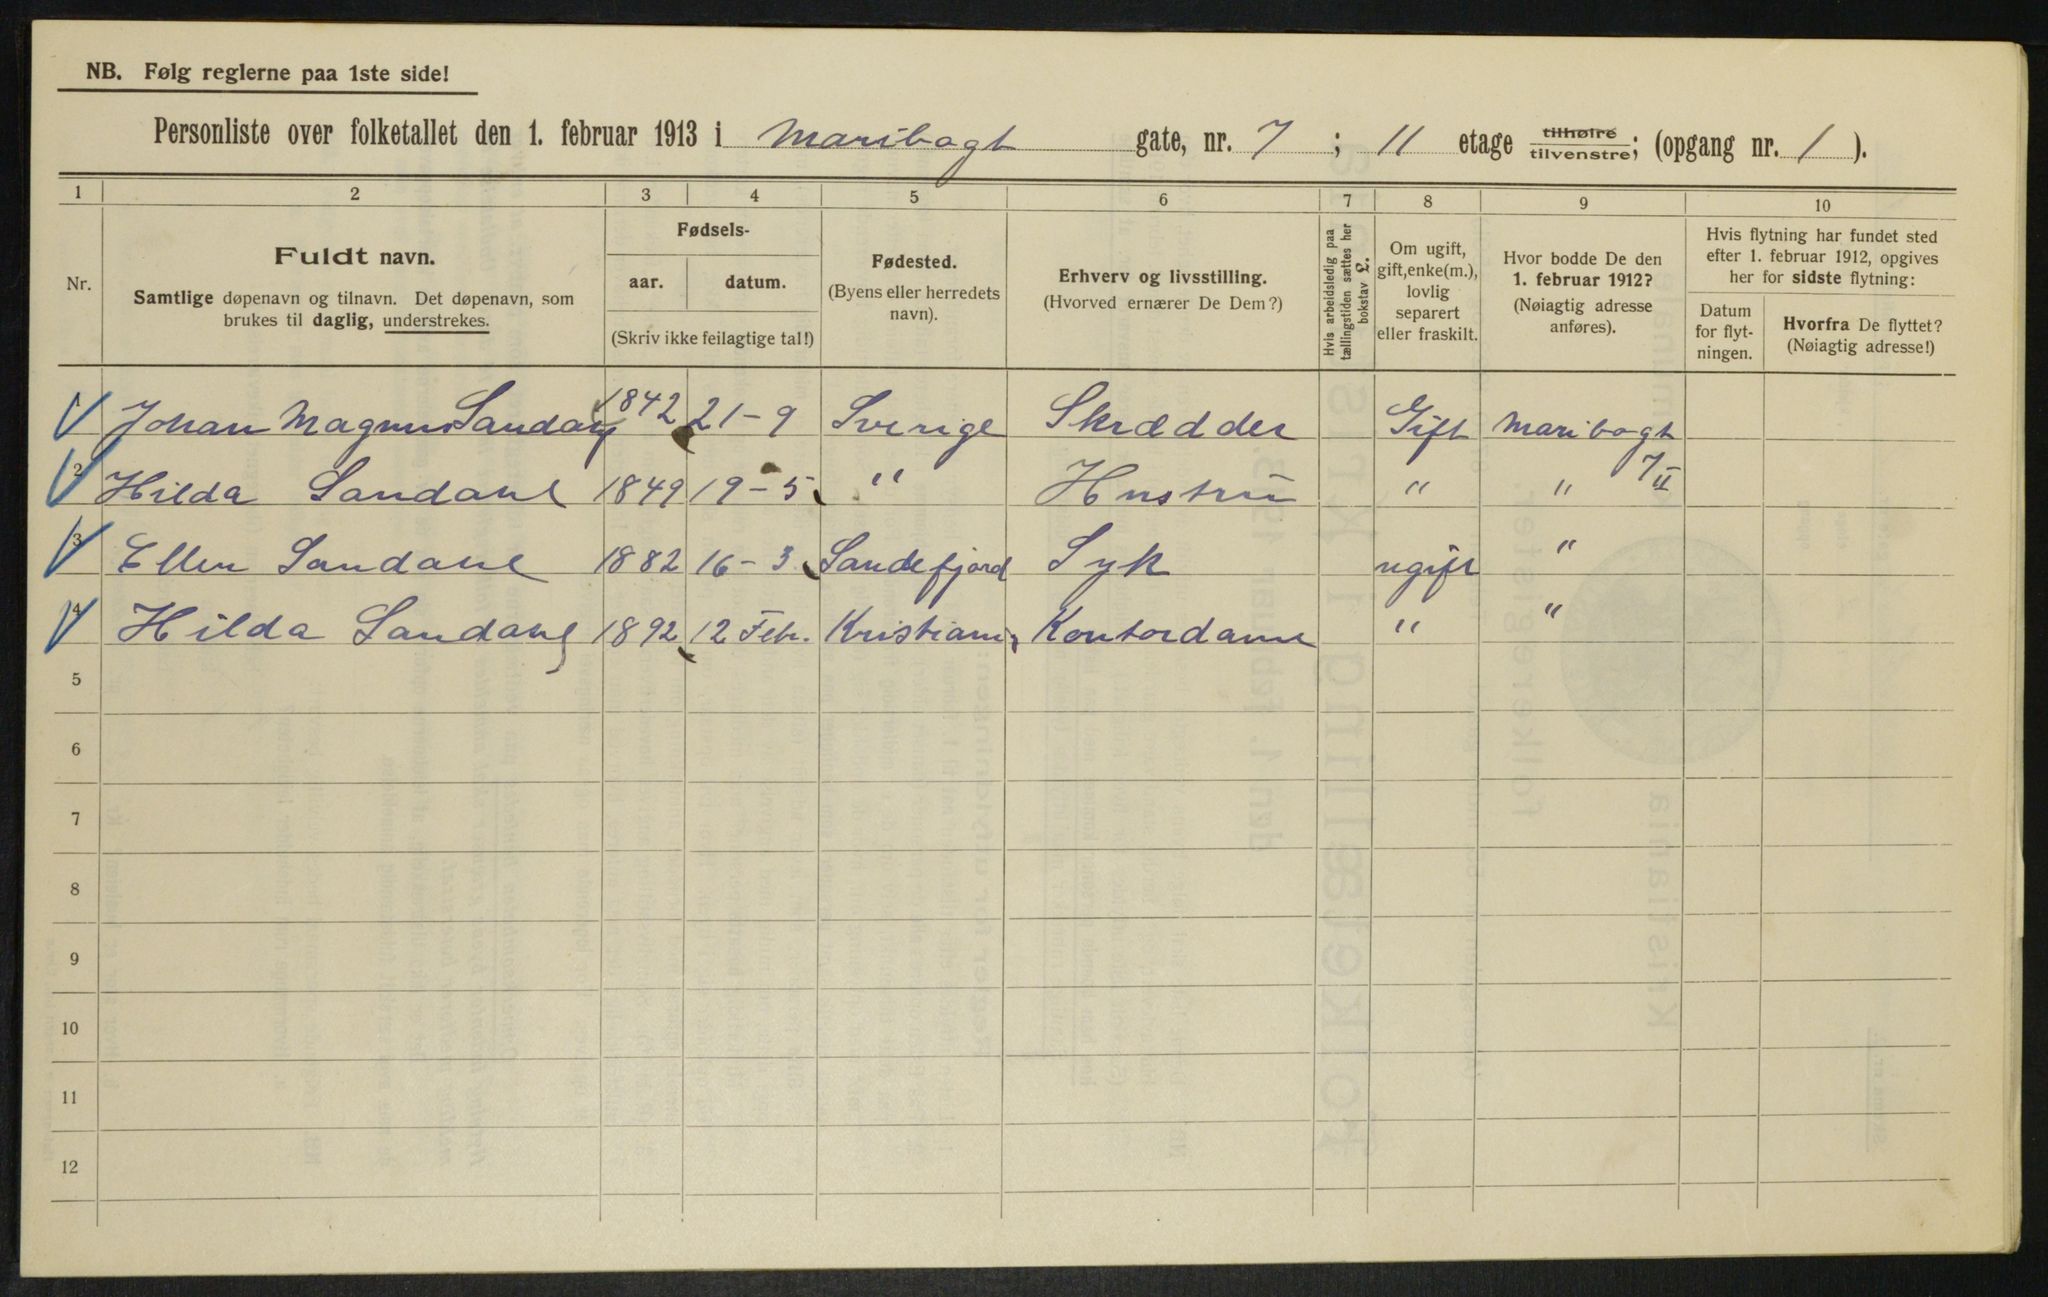 NB. Følg reglerne paa 1ste side!
Personliste over folketallet den 1. februar 1913 i Maribogt gate, nr. 7 ; 11 etage tilhøire tilvenstre; (opgang nr. 1 ).
1 2 3 4 5 6 7 8 9 10
Nr.
Fuldt navn.
Samtlige døpenavn og tilnavn. Det døpenavn, som
brukes til daglig, understrekes.
Fødsels-
aar. datum.
(Skriv ikke feilagtige tal!)
Fødested.
(Byens eller herredets
navn).
Erhverv og livsstilling.
(Hvorved ernærer De Dem?)
Hvis arbeidsledig paa
tællingstiden sættes her
bokstav L.
Om ugift,
gift, enke(m.),
lovlig
separert
eller fraskilt.
Hvor bodde De den
1. februar 1912?
(Nøiagtig adresse
anføres).
Hvis flytning har fundet sted
efter 1. februar 1912, opgives
her for sidste flytning:
Datum
for flyt-
ningen.
Hvorfra De flyttet?
(Nøiagtig adresse!)
1 Johan Magnus Sandahl 1842 21-9 Sverige Skrædder Gift Maribogt
7/II
2 Hilda Sandahl 1849 19-5 " Hustru " "
3 Ellen Sandahl 1882 16-3 Sandefjord Syk ugift "
4 Hilda Sandahl 1892 12 Febr. Kristiania Kontordame " "
5
6
7
8
9
10
11
12